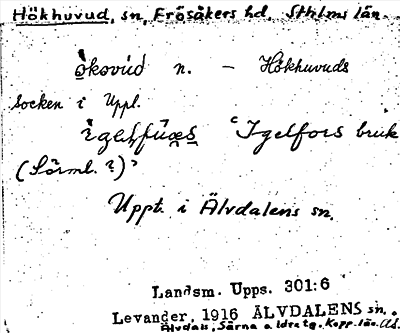 Hökhuvud, sn, Frösåkers hd. Sthlms län
òkovúd n. – Hökhuvuds
socken i Uppl.
'Igelfors bruk
(Sörml. ?)'
Uppt. i Älvdalens sn.
Landsm. Upps. 301:6
Levander, 1916 ÄLVDALENS sn.
Älvdals, Särna o. Idre tg. Kopp. län. Ås.